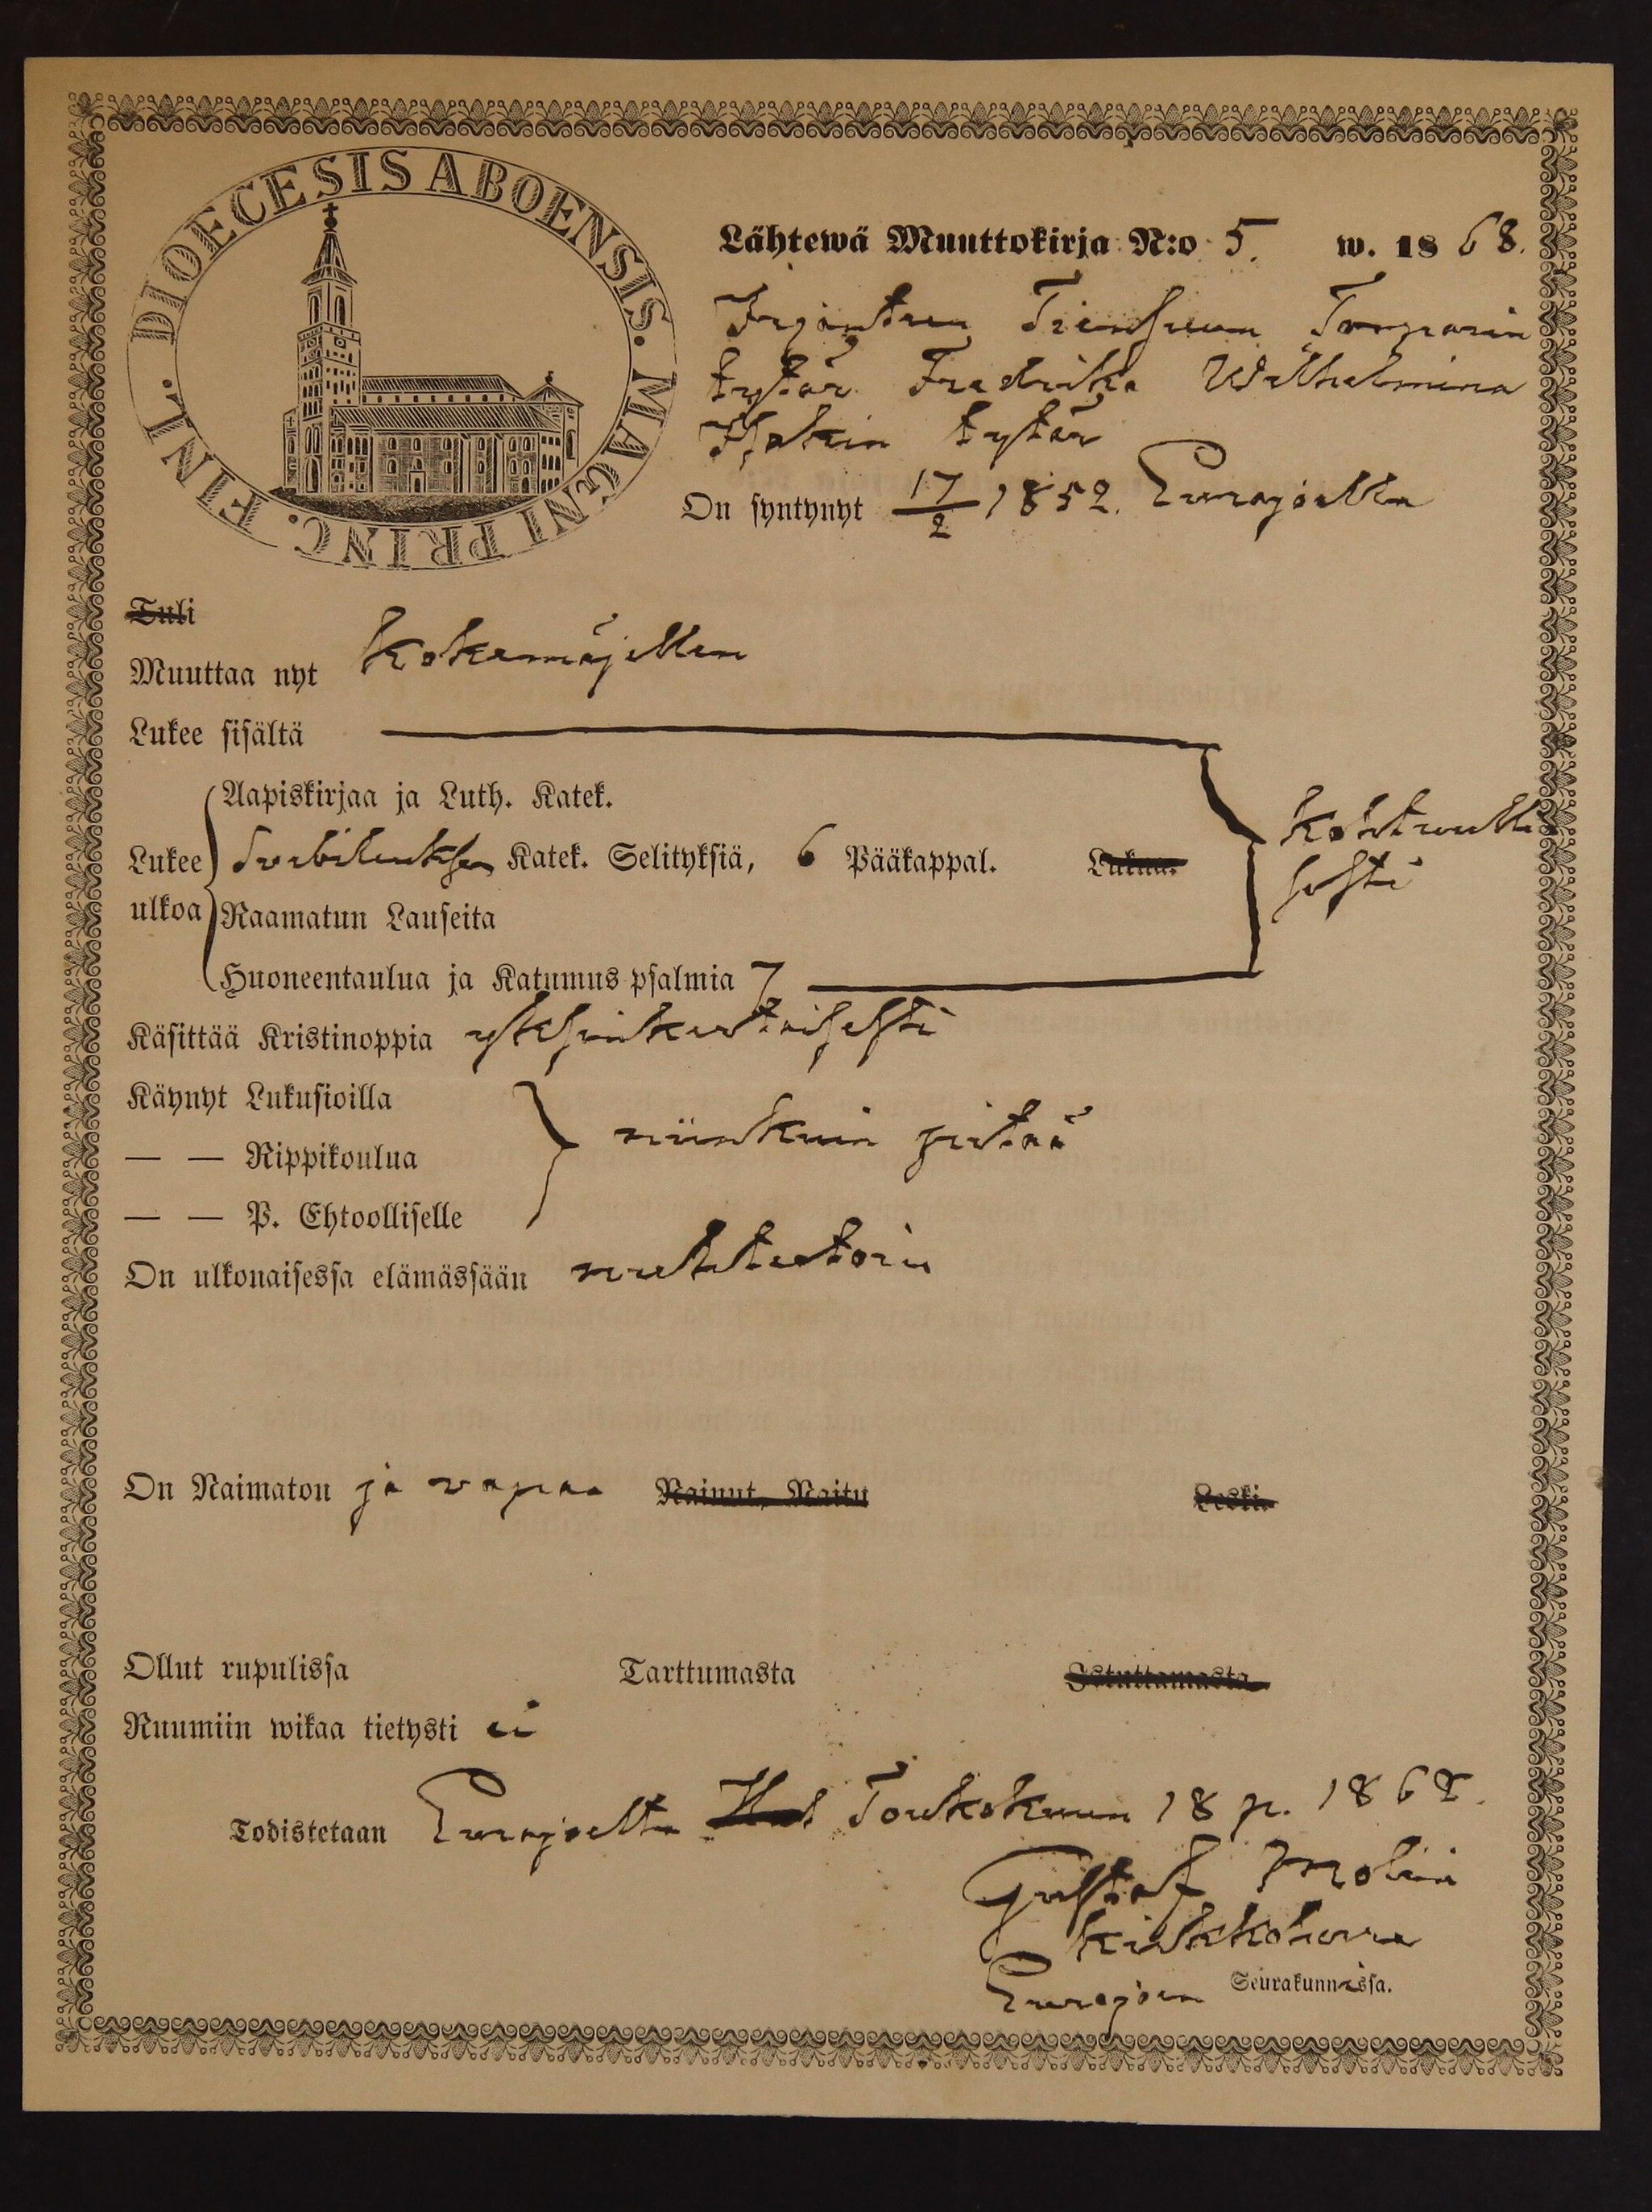 DIOECESIS ABOENSIS. MAGNI PRINC. FINL.
Lähtewä Muuttokirja N:o 5. w. 1868.
Irjanteen Tiensuun Torparin
tytär Fredrika Wilhelmina
Isakin tytär
On syntynyt 17/2 1852. Eurajoella
Tuli
Muuttaa nyt Kokemäjellen
Lukee sisältä
Aapiskirjaa ja Luth. Katek.
Lukee Svebiliuksen Katek. Selityksiä, 6 Pääkappal. Lukuu.
Kohtuulli
sesti
ulkoa Raamatun Lauseita
Huoneentaulua ja Katumus psalmia 7
Käsittää Kristinoppia yksinkertaisesti
Käynyt Lukusioilla
niinkuin pitää
— — Rippikoulua
— — P. Ehtoolliselle
On ulkonaisessa elämässään nuhteetoin
On Naimaton ja vapaa Nainut, Naitu Leski.
Ollut rupulissa Tarttumasta Istuttamasta
Ruumiin wikaa tietysti ei
Todistetaan Eurajoella Toukokuun 18 p. 1868.
Gustaf Molin
Kirkkoherra
Eurajoen Seurakunnassa.